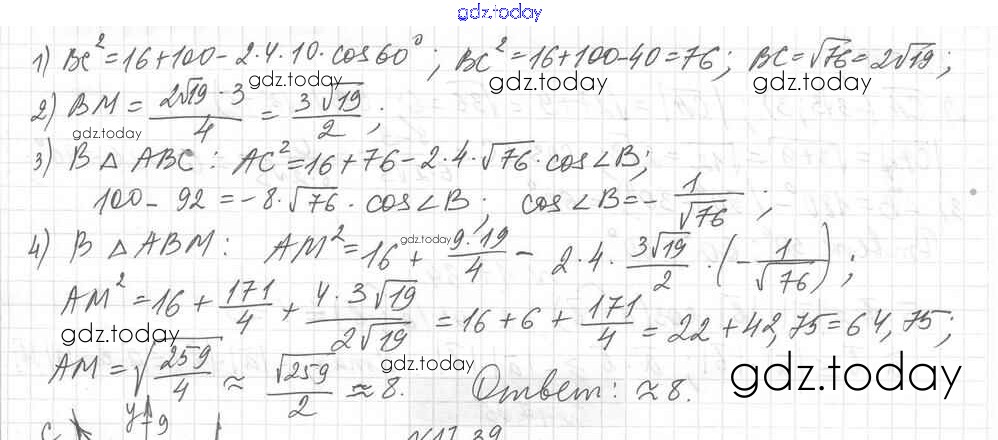 gdz.today
1) BC² = 16 + 100 - 2·4·10·cos60°; BC² = 16 + 100 - 40 = 76; BC = √76 = 2√19;
gdz.today gdz.today gdz.today
2) BM = (2√19·3)/4 = (3√19)/2;
gdz.today
3) В △ ABC: AC² = 16 + 76 - 2·4·√76·cos∠B;
100 - 92 = -8·√76·cos∠B; cos∠B = -1/√76;
4) В △ ABM: AM² = 16 + (9·19)/4 - 2·4·(3√19)/2·(-1/√76);
gdz.today
AM² = 16 + 171/4 + (4·3√19)/(2√19) = 16 + 6 + 171/4 = 22 + 42,75 = 64,75;
gdz.today gdz.today
AM = √(259/4) ≈ √259/2 ≈ 8. Ответ: ≈ 8.
gdz.today
y 9